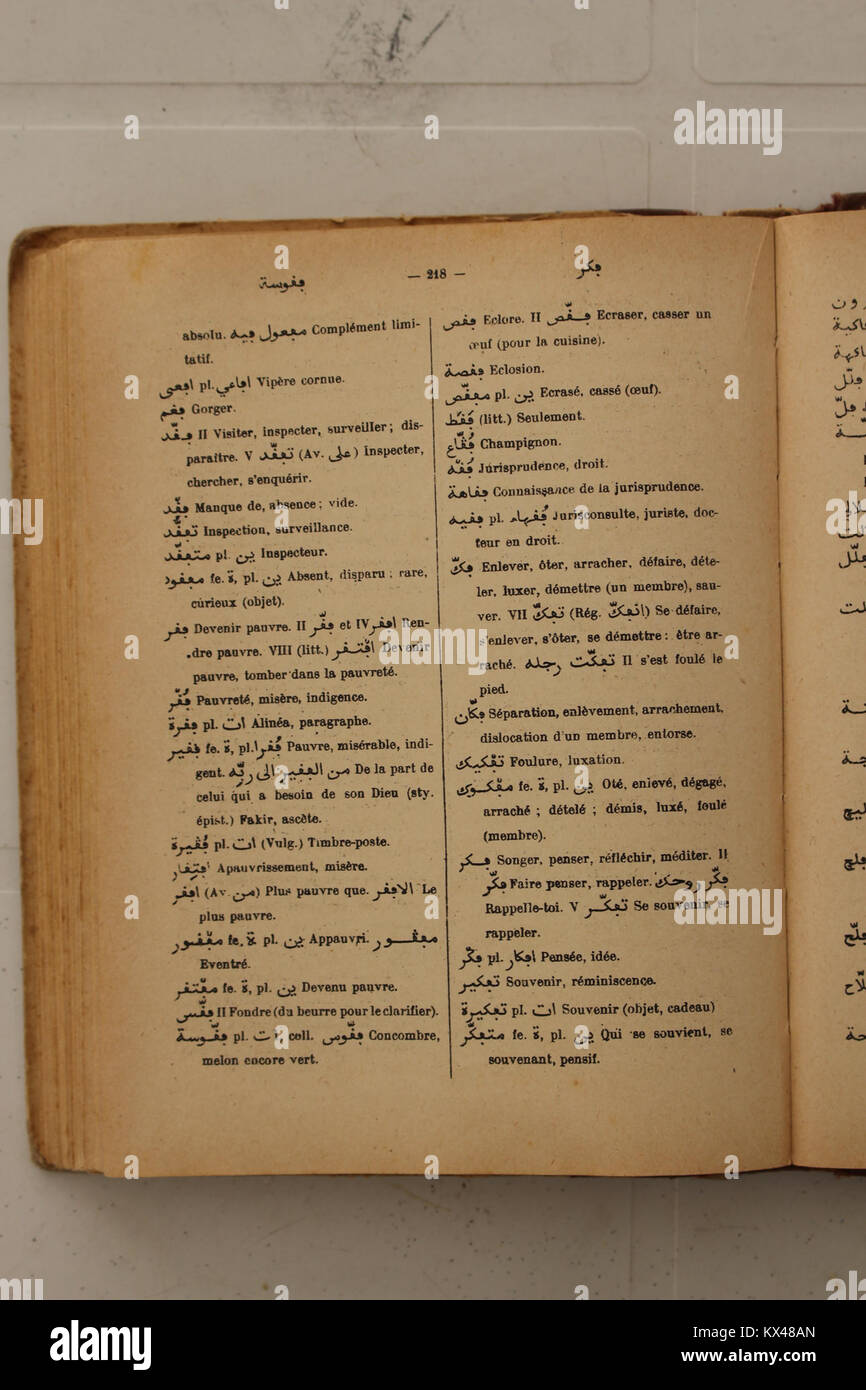 فقوسة — 218 — فكر
absolu. مفعول فيه Complément limi-
tatif.
افعى pl. افاعي Vipère cornue.
فعم Gorger.
فقّد II Visiter, inspecter, surveiller; dis-
paraître. V تفقّد (Av. على) Inspecter,
chercher, s'enquérir.
فقد Manque de, absence; vide.
تفقّد Inspection, surveillance.
متفقّد pl. ين Inspecteur.
مفقود fe. ة, pl. ين Absent, disparu; rare,
curieux (objet).
فقر Devenir pauvre. II فقّر et IV افقر Ren-
dre pauvre. VIII (litt.) افتقر Devenir
pauvre, tomber dans la pauvreté.
فقر Pauvreté, misère, indigence.
فقرة pl. ات Alinéa, paragraphe.
فقير fe. ة, pl. فقرا Pauvre, misérable, indi-
gent. من الفقير الى ربّه De la part de
celui qui a besoin de son Dieu (sty.
épist.) Fakir, ascète.
فقيرة pl. ات (Vulg.) Timbre-poste.
افتقار Apauvrissement, misère.
افقر (Av. من) Plus pauvre que. الافقر Le
plus pauvre.
مفقور fe. ة, pl. ين Appauvri. مفقور
Eventré.
مفتقر fe. ة, pl. ين Devenu pauvre.
فقّس II Fondre (du beurre pour le clarifier).
فقّوسة pl. ات, coll. فقّوس Concombre,
melon encore vert.
فقص Eclore. II فقّص Ecraser, casser un
œuf (pour la cuisine).
فقصة Eclosion.
مفقّص pl. ين Ecrasé, cassé (œuf).
فقط (litt.) Seulement.
فقّاع Champignon.
فقه Jurisprudence, droit.
فقاهة Connaissance de la jurisprudence.
فقيه pl. فقهاء Jurisconsulte, juriste, doc-
teur en droit.
فكّ Enlever, ôter, arracher, défaire, déte-
ler, luxer, démettre (un membre), sau-
ver. VII تفكّ (Rég. انفكّ) Se défaire,
s'enlever, s'ôter, se démettre: être ar-
raché. تفكّت رجله Il s'est foulé le
pied.
فكّان Séparation, enlèvement, arrachement,
dislocation d'un membre, entorse.
تفكيك Foulure, luxation.
مفكوك fe. ة, pl. ين Oté, enlevé, dégagé,
arraché; dételé; démis, luxé, foulé
(membre).
فكر Songer, penser, réfléchir, méditer. II
فكّر Faire penser, rappeler. فكّر روحك
Rappelle-toi. V تفكّر Se souvenir se
rappeler.
فكر pl. افكار Pensée, idée.
تفكير Souvenir, réminiscence.
تفكيرة pl. ات Souvenir (objet, cadeau)
متفكّر fe. ة, pl. ين Qui se souvient, se
souvenant, pensif.
alamy
Image ID: KX48AN
www.alamy.com